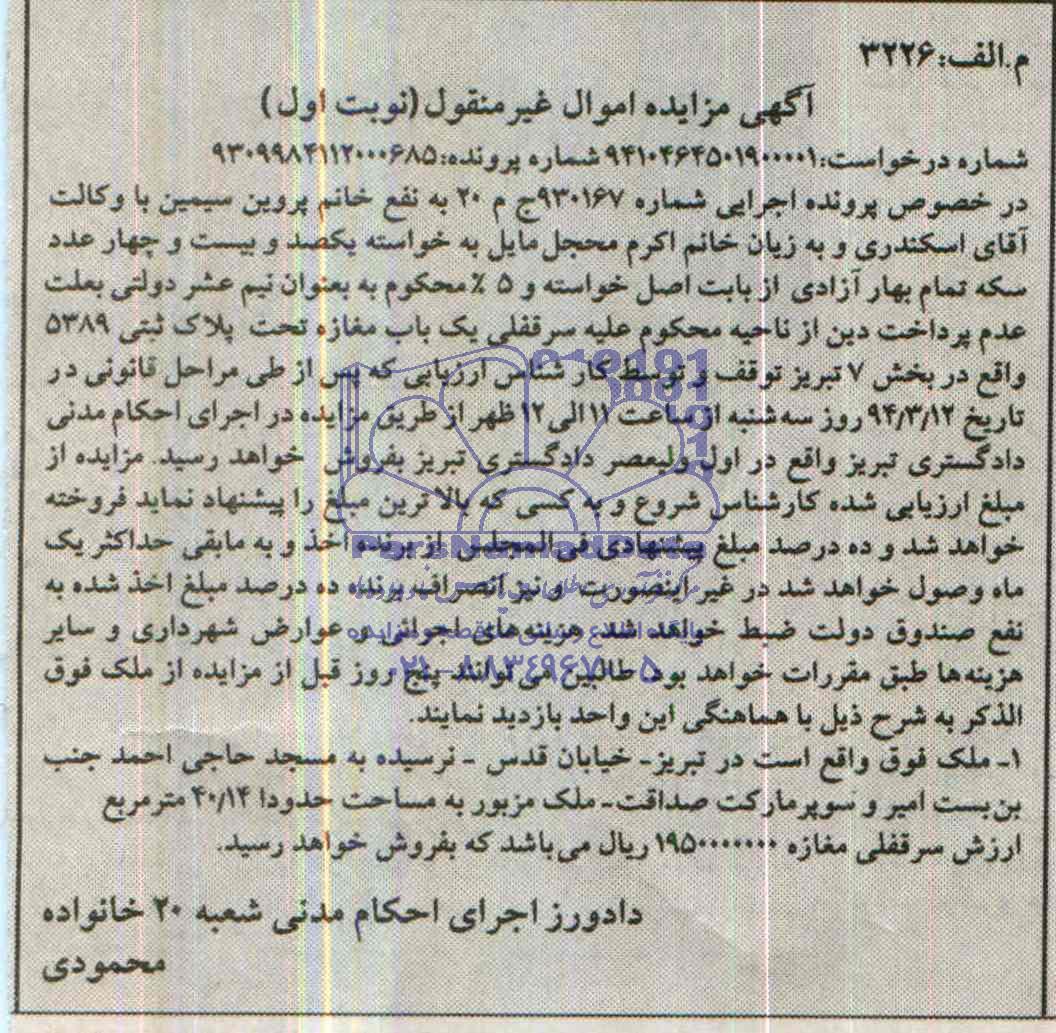 م.الف:۳۲۲۶
آگهی مزایده اموال غیرمنقول(نوبت اول)
شماره درخواست:۹۴۱۰۴۶۴۵۰۱۹۰۰۰۰۱ شماره پرونده:۹۳۰۹۹۸۴۱۱۲۰۰۰۶۸۵
در خصوص پرونده اجرایی شماره ۹۳۰۱۶۷ج م ۲۰ به نفع خانم پروین سیمین با وکالت
آقای اسکندری و به زیان خانم اکرم محجل مایل به خواسته یکصد و بیست و چهار عدد
سکه تمام بهار آزادی از بابت اصل خواسته و ۵ ٪ محکوم به بعنوان نیم عشر دولتی بعلت
عدم پرداخت دین از ناحیه محکوم علیه سرقفلی یک باب مغازه تحت پلاک ثبتی ۵۳۸۹
واقع در بخش ۷ تبریز توقف و توسط کار شناس ارزیابی که پس از طی مراحل قانونی در
تاریخ ۹۴/۳/۱۲ روز سه‌شنبه از ساعت ۱۱ الی ۱۲ ظهر از طریق مزایده در اجرای احکام مدنی
دادگستری تبریز واقع در اول ولیعصر دادگستری تبریز بفروش خواهد رسید. مزایده از
مبلغ ارزیابی شده کارشناس شروع و به کسی که بالا ترین مبلغ را پیشنهاد نماید فروخته
خواهد شد و ده درصد مبلغ پیشنهادی فی المجلس از برنده اخذ و به مابقی حداکثر یک
ماه وصول خواهد شد در غیر اینصورت و نیز انصراف برنده ده درصد مبلغ اخذ شده به
نفع صندوق دولت ضبط خواهد شد هزینه‌های اجرائی و عوارض شهرداری و سایر
هزینه‌ها طبق مقررات خواهد بود طالبین می‌توانند پنج روز قبل از مزایده از ملک فوق
الذکر به شرح ذیل با هماهنگی این واحد بازدید نمایند.
۱ـ ملک فوق واقع است در تبریزـ خیابان قدس ـ نرسیده به مسجد حاجی احمد جنب
بن‌بست امیر و سوپرمارکت صداقت ـ ملک مزبور به مساحت حدودا ۴۰/۱۴ مترمربع
ارزش سرقفلی مغازه ۱۹۵۰۰۰۰۰۰۰ ریال می‌باشد که بفروش خواهد رسید.
دادورز اجرای احکام مدنی شعبه ۲۰ خانواده
محمودی